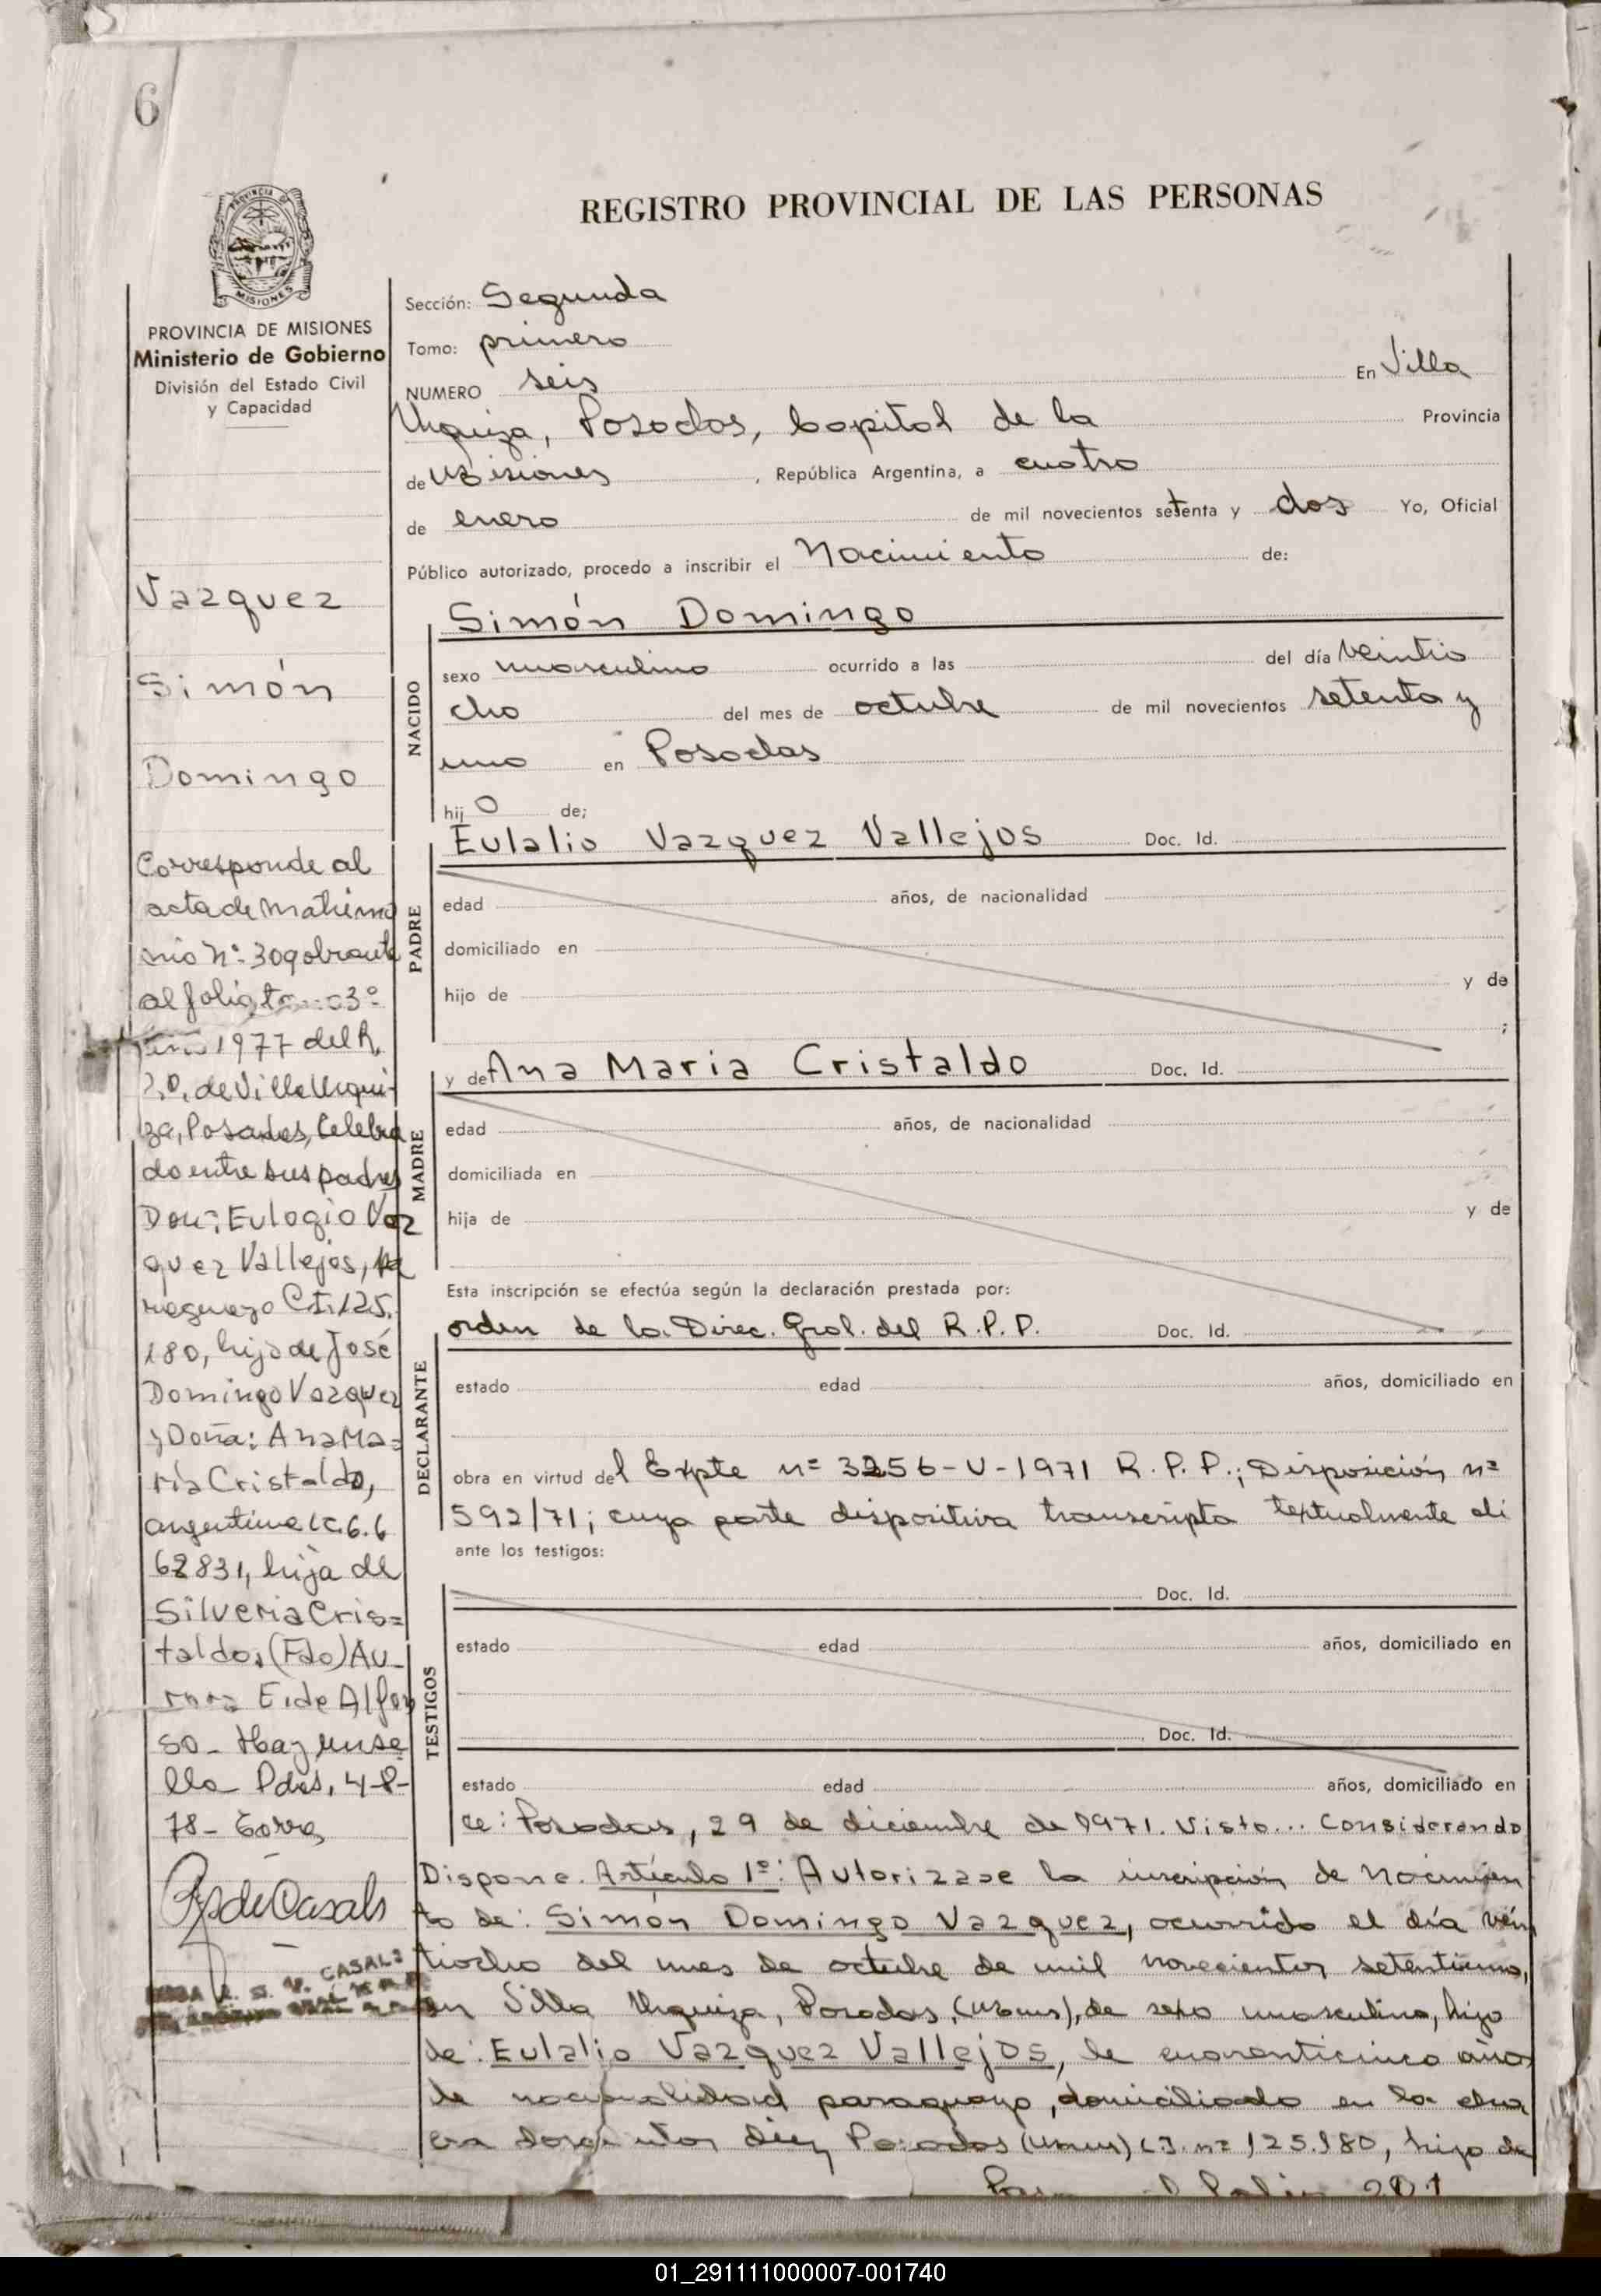 6
REGISTRO PROVINCIAL DE LAS PERSONAS
PROVINCIA DE
MISIONES
PROVINCIA DE MISIONES
Ministerio de Gobierno
División del Estado Civil
y Capacidad
Vazquez
Simón
Domingo
Corresponde al
acta de Matrimo
nio Nº 309 obrante
al folio 03º
1977 del R.
P.P. de Villa Urqui-
za, Posadas, Celebra
do entre sus padres
Don: Eulogio Vaz
quez Vallejos, pa
raguayo C.I. 125.
180, hijo de José
Domingo Vazquez
y Doña: Ana Ma=
ría Cristaldo,
argentina LC. 6.6
62831, hija de
Silveria Cris=
taldo, (Fdo) Au_
rora E. de Alfon
so_ Hay un se
llo Pdas, 4-8-
78_
CASALS
Sección: Segunda
Tomo: primero
NUMERO seis En Villa
Urquiza, Posadas, Capital de la Provincia
de Misiones, República Argentina, a cuatro
de enero de mil novecientos setenta y dos Yo, Oficial
Público autorizado, procedo a inscribir el Nacimiento de:
NACIDO
Simón Domingo
sexo masculino ocurrido a las del día veintio
cho del mes de octubre de mil novecientos setenta y
uno en Posadas
hijo de;
PADRE
Eulalio Vazquez Vallejos Doc. Id.
edad años, de nacionalidad
domiciliado en
hijo de y de
;
MADRE
y de Ana Maria Cristaldo Doc. Id.
edad años, de nacionalidad
domiciliada en
hija de y de
Esta inscripción se efectúa según la declaración prestada por:
DECLARANTE
orden de la Direc. Gral. del R.P.P. Doc. Id.
estado edad años, domiciliado en
obra en virtud del Expte nº 3256-V-1971 R.P.P.; Disposición nº
592/71; cuya parte dispositiva transcripta textualmente di
ante los testigos:
TESTIGOS
Doc. Id.
estado edad años, domiciliado en
Doc. Id.
estado edad años, domiciliado en
ce: Posadas, 29 de diciembre de 1971. Visto... Considerando
Dispone. Artículo 1º: Autorizase la inscripción de Nacimien
to de: Simón Domingo Vazquez, ocurrido el día vein
tiocho del mes de octubre de mil novecientos setentiuno,
en Villa Urquiza, Posadas, (Mnes), de sexo masculino, hijo
de: Eulalio Vazquez Vallejos, de cuarenticinco años
de nacionalidad paraguayo, domiciliado en la cha
cra doscientos diez Posadas (Mnes) C.I. nº 125.180, hijo de
Pasa al Folio 201
01_291111000007-001740